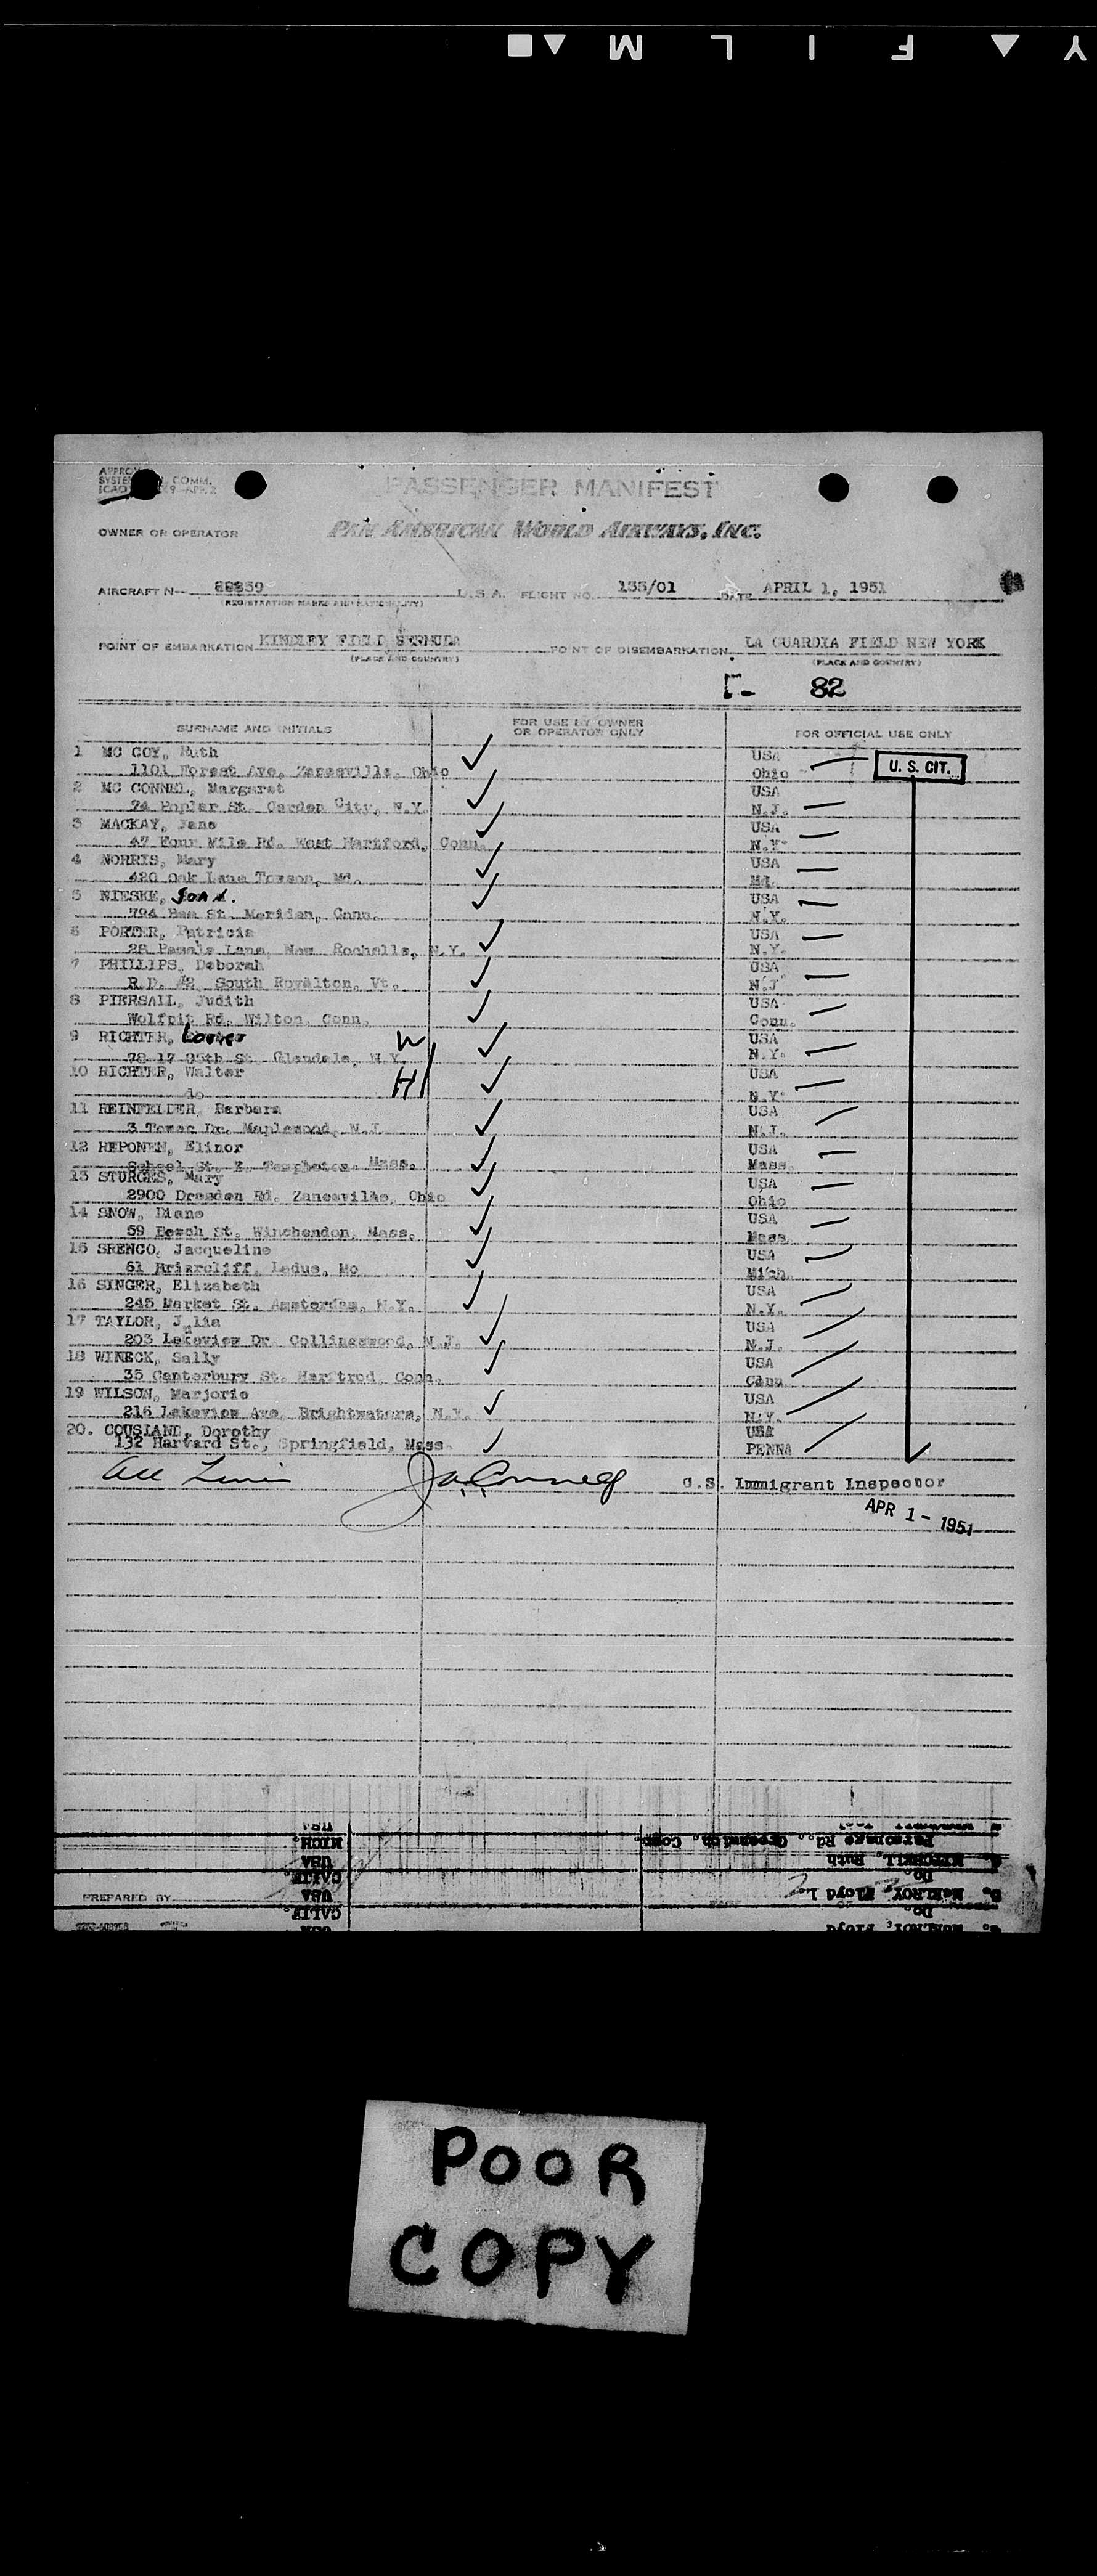 Y F I L M
PASSENGER MANIFEST
OWNER OR OPERATOR PAN AMERICAN WORLD AIRWAYS, INC.
AIRCRAFT N-- 88859 U.S.A. FLIGHT NO. 135/01 DATE APRIL 1, 1951
(REGISTRATION MARKS AND NATIONALITY)
POINT OF EMBARKATION KINDLEY FIELD BERMUDA POINT OF DISEMBARKATION LA GUARDIA FIELD NEW YORK
(PLACE AND COUNTRY) (PLACE AND COUNTRY)
82
SURNAME AND INITIALS FOR USE BY OWNER OR OPERATOR ONLY FOR OFFICIAL USE ONLY
1 MC COY, Ruth USA
1101 Forest Ave, Zanesville, Ohio Ohio U. S. CIT.
2 MC CONNEL, Margaret USA
74 Poplar St. Garden City, N.Y. N.J.
3 MACKAY, Jane USA
47 Four Mile Rd. West Hartford, Conn. N.Y.
4 NORRIS, Mary USA
420 Oak Lane Towson, Md. Md.
5 NIESKE, Joan USA
794 St. Meriden, Conn. N.Y.
6 PORTER, Patricia USA
28 Lane, New Rochelle, N.Y. N.Y.
7 PHILLIPS, Deborah USA
R.D. #2 South Royalton, Vt. N.J
8 PIERSALL, Judith USA
Wolfpit Rd. Wilton, Conn. Conn.
9 RICHTER, W USA
78-17 St. Glendale, N.Y. N.Y.
10 RICHTER, Walter H USA
do N.Y.
11 REINFELDER, Barbara USA
3 Tower Dr. Maplewood, N.J. N.J.
12 REPONEN, Elinor USA
School St. E. Templeton, Mass. Mass.
13 STURGES, Mary USA
2900 Dresden Rd. Zanesville, Ohio Ohio
14 SNOW, Diane USA
59 Beech St. Winchendon, Mass. Mass.
15 SRENCO, Jacqueline USA
51 Briarcliff, Ladue, Mo Mich.
16 SINGER, Elizabeth USA
245 Market St. Amsterdam, N.Y. N.Y.
17 TAYLOR, Julia USA
203 Lakeview Dr. Collingswood, N.J. N.J.
18 WINECK, Sally USA
35 Canterbury St. Hartfrod, Conn.
19 WILSON, Marjorie USA
216 Lakeview Ave, Brightwaters, N.Y. N.Y.
20. COUSLAND, Dorothy USA
132 Harvard St., Springfield, Mass. PENNA
U.S. Immigrant Inspector
APR 1 - 1951
USA
MICH. Parsonage Rd., Greenwich, Conn.
USA MITCHELL, Ruth
CALIF. Do.
USA McELROY, Floyd L.
CALIF. Do.
USA McELROY, Floyd
PREPARED BY
POOR
COPY